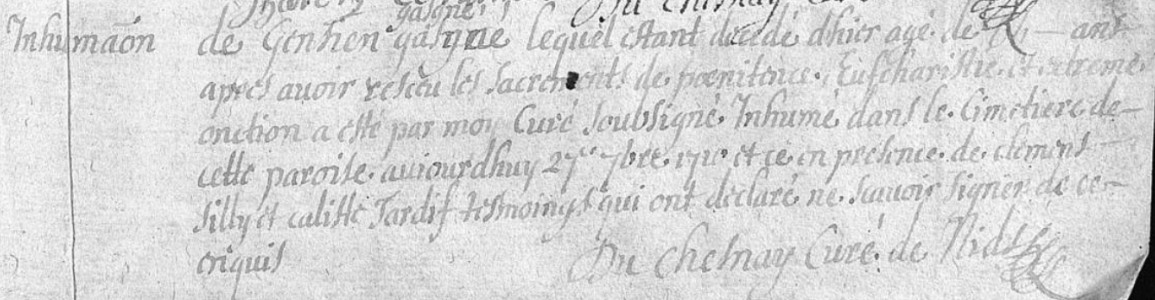 Du Chesnay Curé
gasgne
Inhumaõn de Genhen gasgne lequel estant decedé d'hier agé de ans
apres avoir resceu les sacrements de pœnitence, Eufcharistie, et extreme
onction a esté par moy Curé soubsigné Inhumé dans le Cimetiere de
cette paroise aujourdhuy 27e 7bre 1710 et ce en presence de clement
silly et calitte Tardif tesmoings qui ont déclaré ne scavoir signer de ce
enquis Du Chesnay Curé de Nids